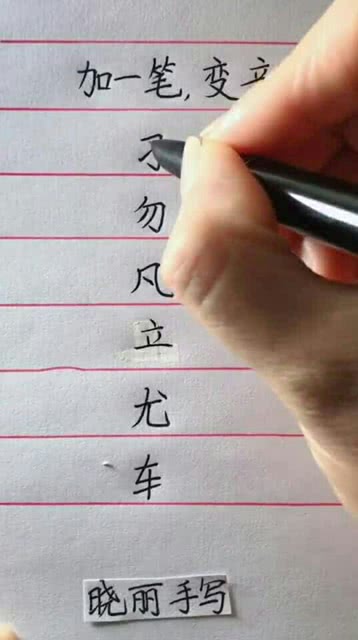 加一笔,变
勿
凡
立
尤
车
晓丽手写